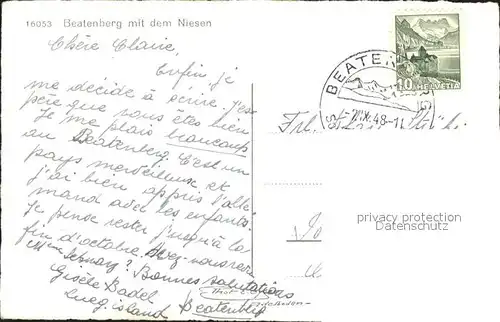 16053 Beatenberg mit dem Niesen
Chère Claire,
Enfin je
me décide à écrire. J'es
père que vous êtes bien
Je me plais beaucoup
au Beatenberg C'est un
pays merveilleux et
j'ai bien appris l'alle
mand avec les enfants.
Je pense rester jusqu'à la
fin d'octobre. Avez-vous revu
Mme ? Bonnes salutations
Gisèle Badel
island Beatenberg
BEATENBERG
48-11
10
HELVETIA
Frl.
privacy protection
Datenschutz